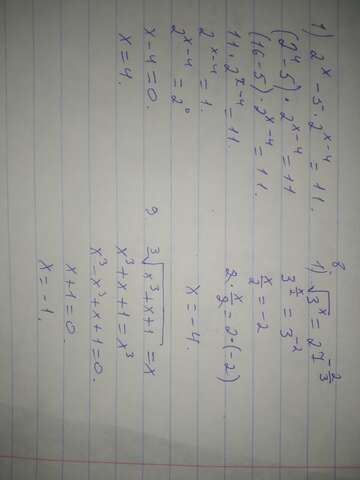 1) 2^x - 5 · 2^(x-4) = 11.
(2^4 - 5) · 2^(x-4) = 11
(16 - 5) · 2^(x-4) = 11.
11 · 2^(x-4) = 11.
2^(x-4) = 1.
2^(x-4) = 2^0
x - 4 = 0.
x = 4.
8.
1) √(3^x) = 27^(-2/3)
3^(x/2) = 3^(-2)
x/2 = -2
2 · x/2 = 2 · (-2)
x = -4.
9. ∛(x³ + x + 1) = x
x³ + x + 1 = x³
x³ - x³ + x + 1 = 0.
x + 1 = 0.
x = -1.